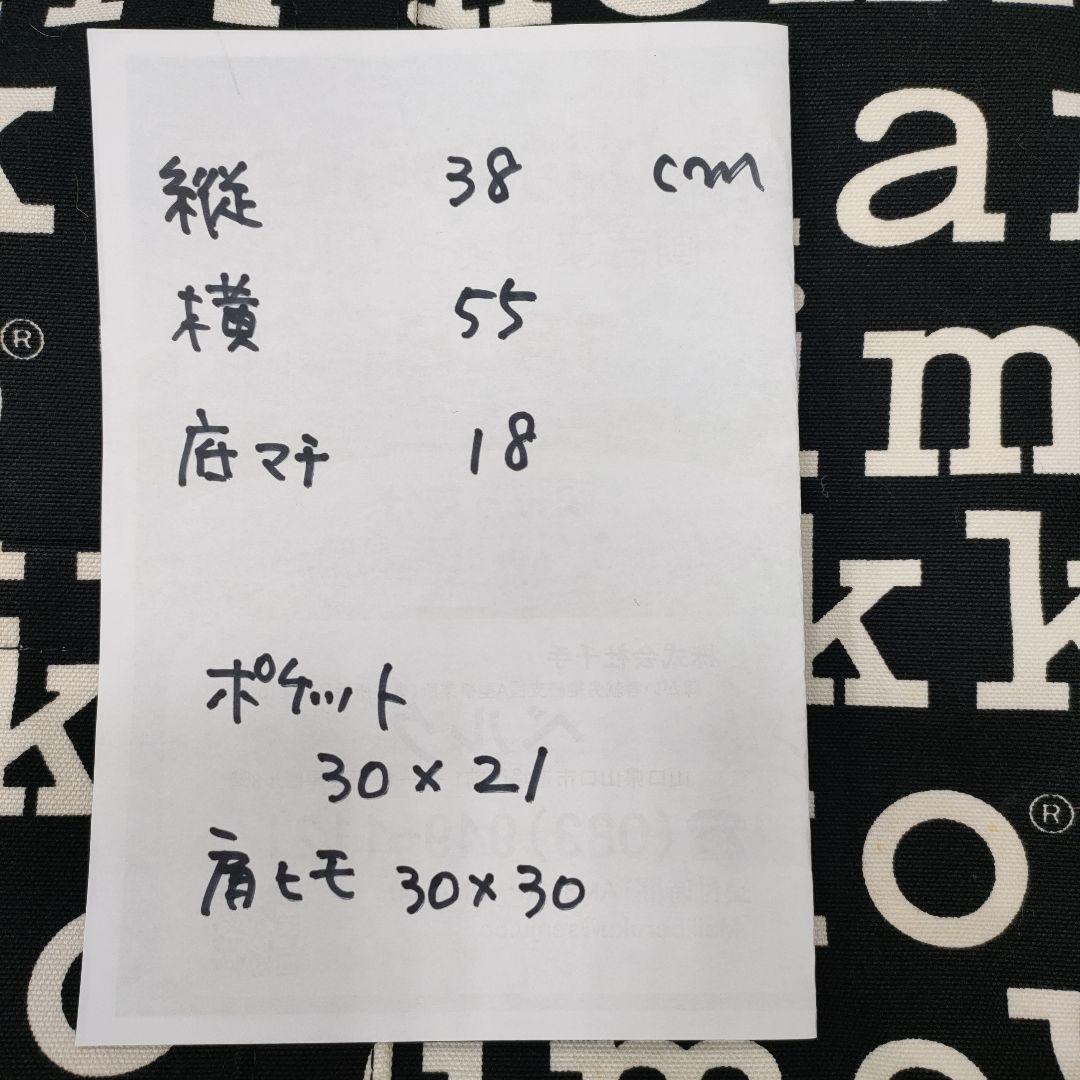 縦 38 cm
横 55
底マチ 18
ポケット
30×21
肩ヒモ 30×30